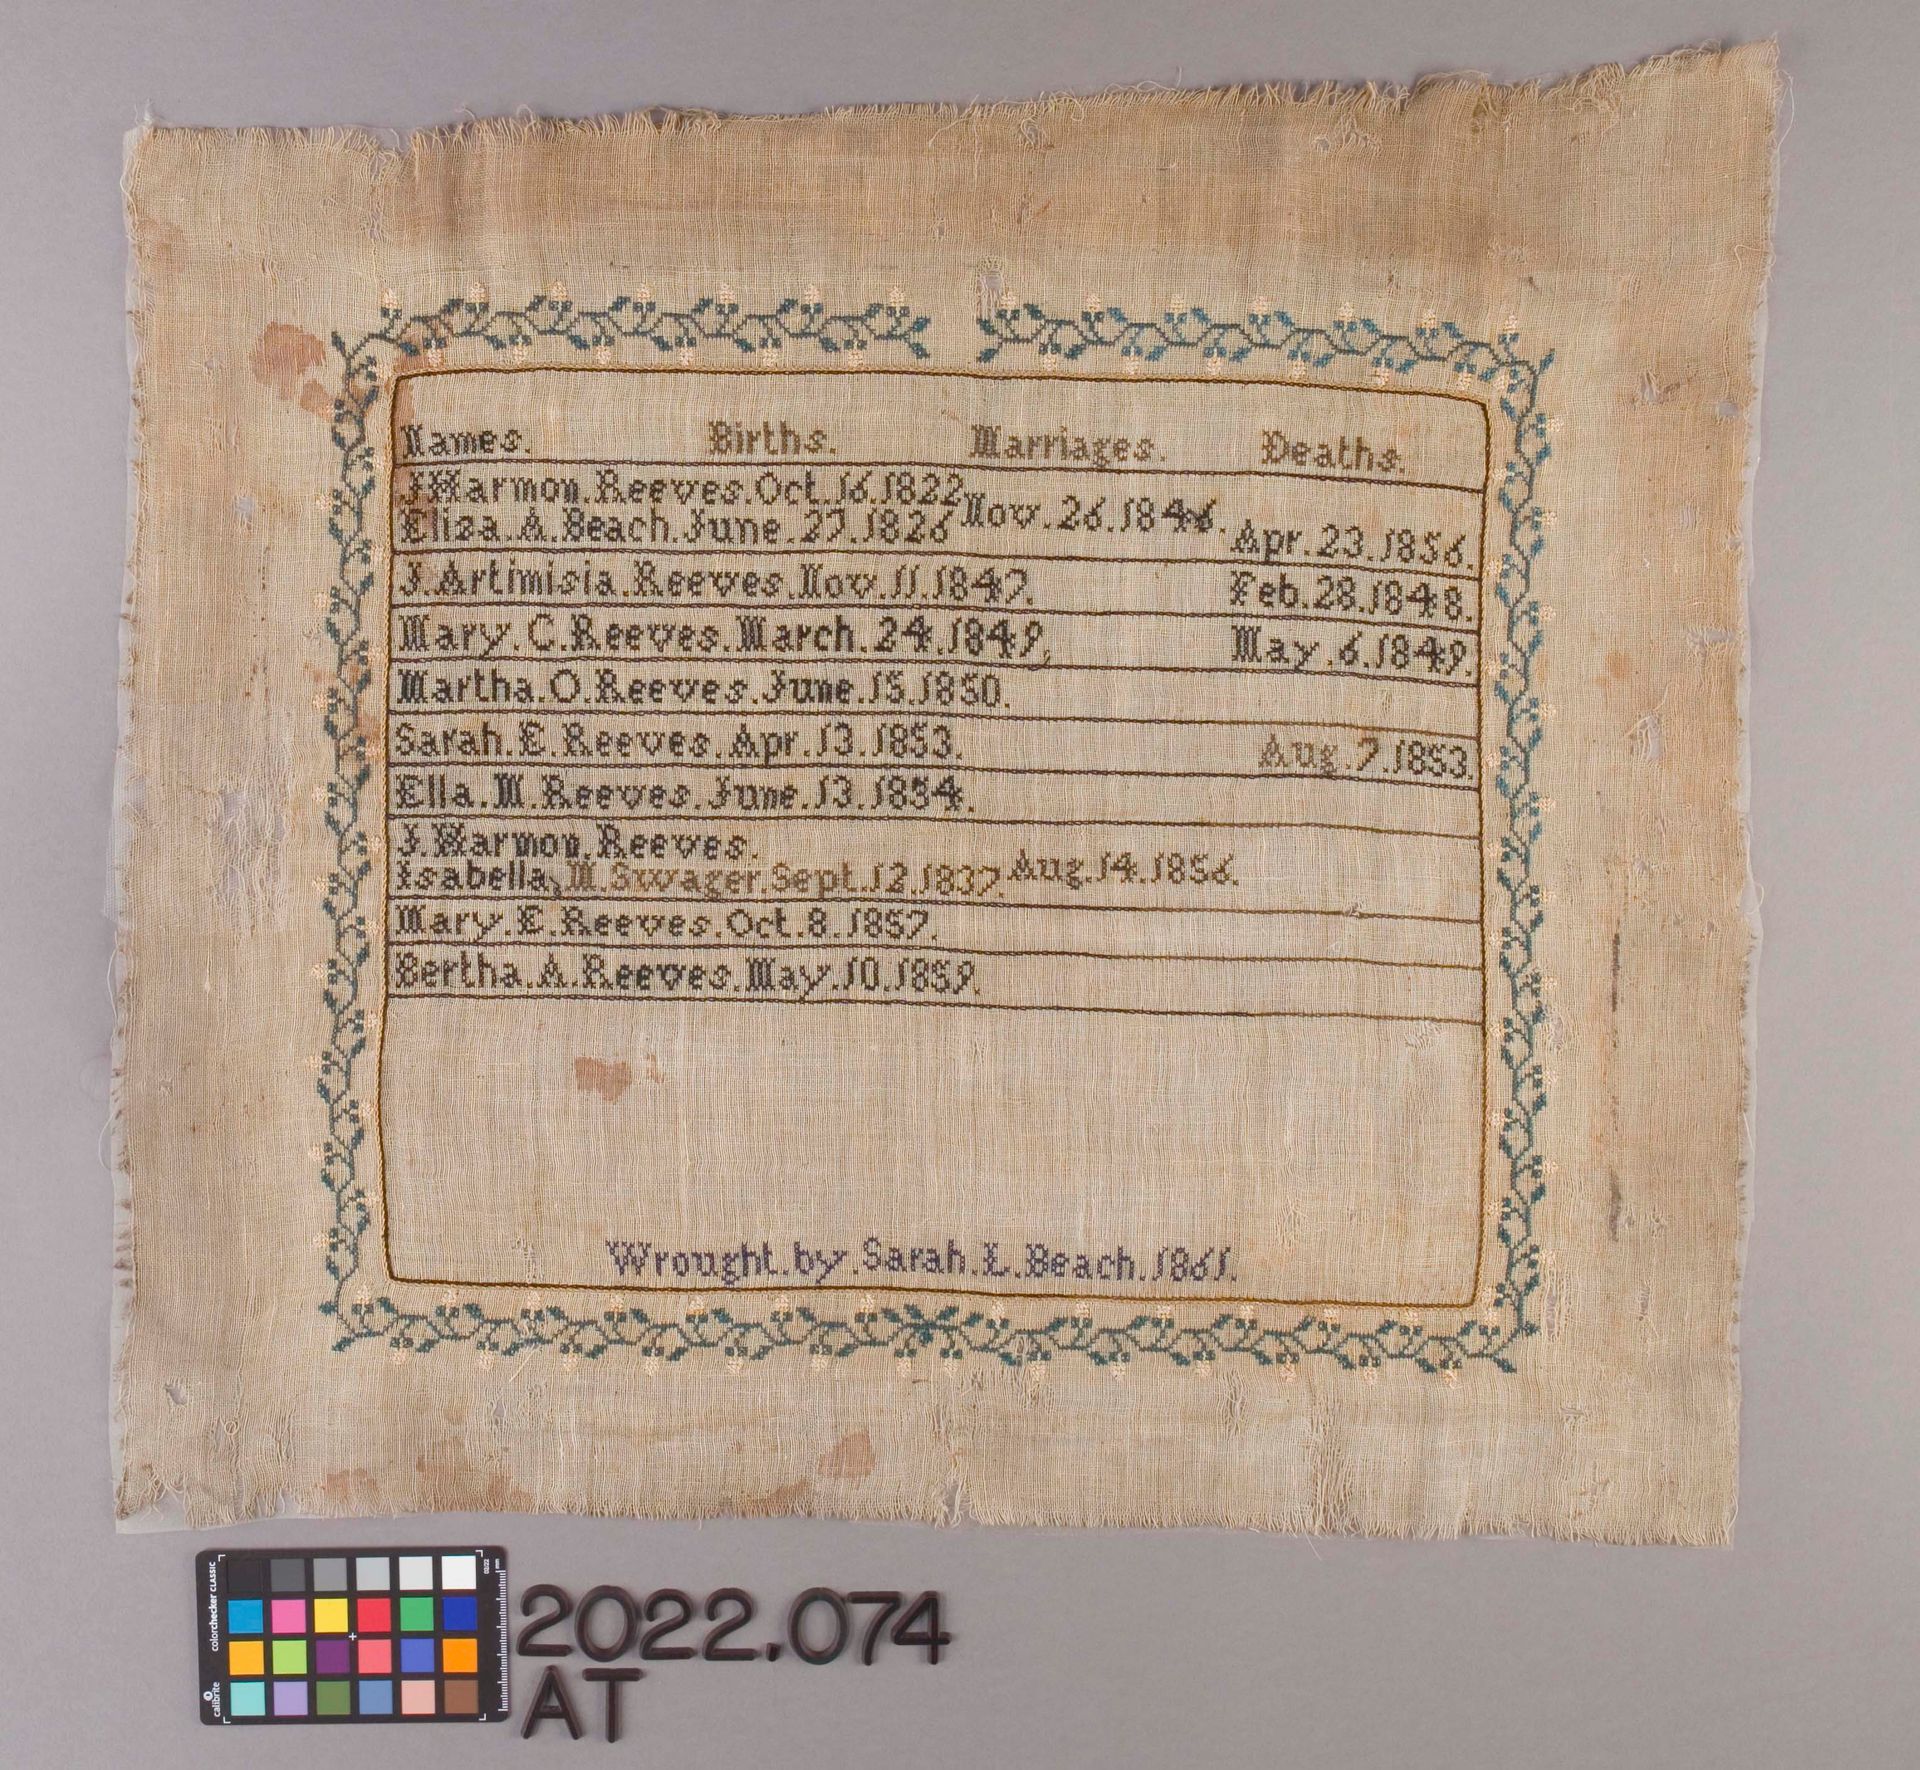 Names. Births. Marriages. Deaths.
J. Harmon. Reeves. Oct. 16. 1822
Eliza. A. Beach. June. 27. 1826 Nov. 26. 1846. Apr. 23. 1856.
J. Artimisia. Reeves. Nov. 11. 1847. Feb. 28. 1848.
Mary. C. Reeves. March. 24. 1849, May. 6. 1849.
Martha. O. Reeves. June. 15. 1850.
Sarah. E. Reeves. Apr. 13. 1853. Aug. 7. 1853.
Ella. M. Reeves. June. 13. 1854.
J. Harmon. Reeves.
Isabella, M. Swager. Sept. 12. 1837. Aug. 14. 1856.
Mary. E. Reeves. Oct. 8. 1857.
Bertha. A. Reeves. May. 10. 1859.
Wrought. by. Sarah. L. Beach. 1861.
colorchecker CLASSIC
calibrite
mm
2022.074
AT